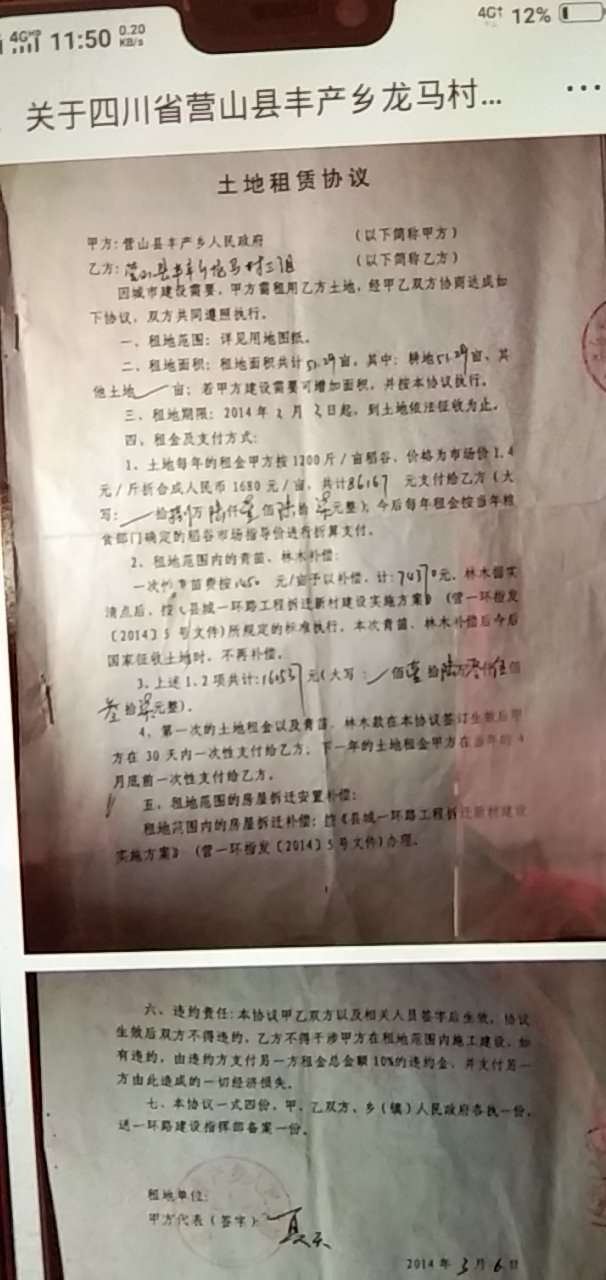 4G 11:50 0.20 KB/s 4G 12%
关于四川省营山县丰产乡龙马村...
土地租赁协议
甲方:营山县丰产乡人民政府 (以下简称甲方)
乙方:营山县丰产乡龙马村三组 (以下简称乙方)
因城市建设需要,甲方需租用乙方土地,经甲乙双方协商达成如
下协议,双方共同遵照执行。
一、租地范围:详见用地图纸。
二、租地面积:租地面积共计51.29亩,其中:耕地51.29亩,其
他土地 亩;若甲方建设需要可增加面积,并按本协议执行。
三、租地期限:2014年 月 日起,到土地依法征收为止。
四、租金及支付方式:
1、土地每年的租金甲方按1200斤/亩稻谷、价格为市场价1.4
元/斤折合成人民币1680元/亩,共计86167 元支付给乙方(大
写: 拾捌万陆仟壹佰陆拾柒元整);今后每年租金按当年粮
食部门确定的稻谷市场指导价进行折算支付。
2、租地范围内的青苗、林木补偿:
一次性青苗费按1450 元/亩予以补偿,计:74370元,林木据实
清点后,按《县城一环路工程拆迁新村建设实施方案》(营一环指发
〔2014〕5 号文件)所规定的标准执行,本次青苗、林木补偿后今后
国家征收土地时,不再补偿。
3、上述1、2项共计:160537元(大写: 佰壹拾陆万零仟伍佰
叁拾柒元整)。
4、第一次的土地租金以及青苗、林木款在本协议签订生效后甲
方在30天内一次性支付给乙方,下一年的土地租金甲方在当年的4
月底前一次性支付给乙方。
五、租地范围的房屋拆迁安置补偿:
租地范围内的房屋拆迁补偿:按《县城一环路工程拆迁新村建设
实施方案》(营一环指发〔2014〕5号文件)办理。
1
六、违约责任:本协议甲乙双方以及相关人员签字后生效,协议
生效后双方不得违约,乙方不得干涉甲方在租地范围内施工建设,如
有违约,由违约方支付另一方租金总金额10%的违约金,并支付另一
方由此造成的一切经济损失。
七、本协议一式四份,甲、乙双方、乡(镇)人民政府各执一份,
送一环路建设指挥部备案一份。
租地单位:
甲方代表(签字):夏天
2014年3月6日